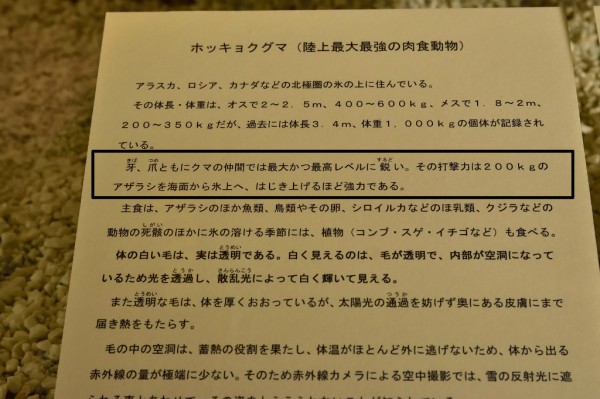 ホッキョクグマ（陸上最大最強の肉食動物）
アラスカ、ロシア、カナダなどの北極圏の氷の上に住んでいる。
その体長・体重は、オスで２～２．５ｍ、４００～６００ｋｇ、メスで１．８～２ｍ、
２００～３５０ｋｇだが、過去には体長３．４ｍ、体重１，０００ｋｇの個体が記録され
ている。
きば つめ するど
牙、爪ともにクマの仲間では最大かつ最高レベルに鋭い。その打撃力は２００ｋｇの
アザラシを海面から氷上へ、はじき上げるほど強力である。
主食は、アザラシのほか魚類、鳥類やその卵、シロイルカなどのほ乳類、クジラなどの
しがい
動物の死骸のほかに氷の溶ける季節には、植物（コンブ・スゲ・イチゴなど）も食べる。
とうめい
体の白い毛は、実は透明である。白く見えるのは、毛が透明で、内部が空洞になって
とうか さんらんこう
いるため光を透過し、散乱光によって白く輝いて見える。
とうめい つうか
また透明な毛は、体を厚くおおっているが、太陽光の通過を妨げず奥にある皮膚にまで
届き熱をもたらす。
毛の中の空洞は、蓄熱の役割を果たし、体温がほとんど外に逃げないため、体から出る
赤外線の量が極端に少ない。そのため赤外線カメラによる空中撮影では、雪の反射光に遮